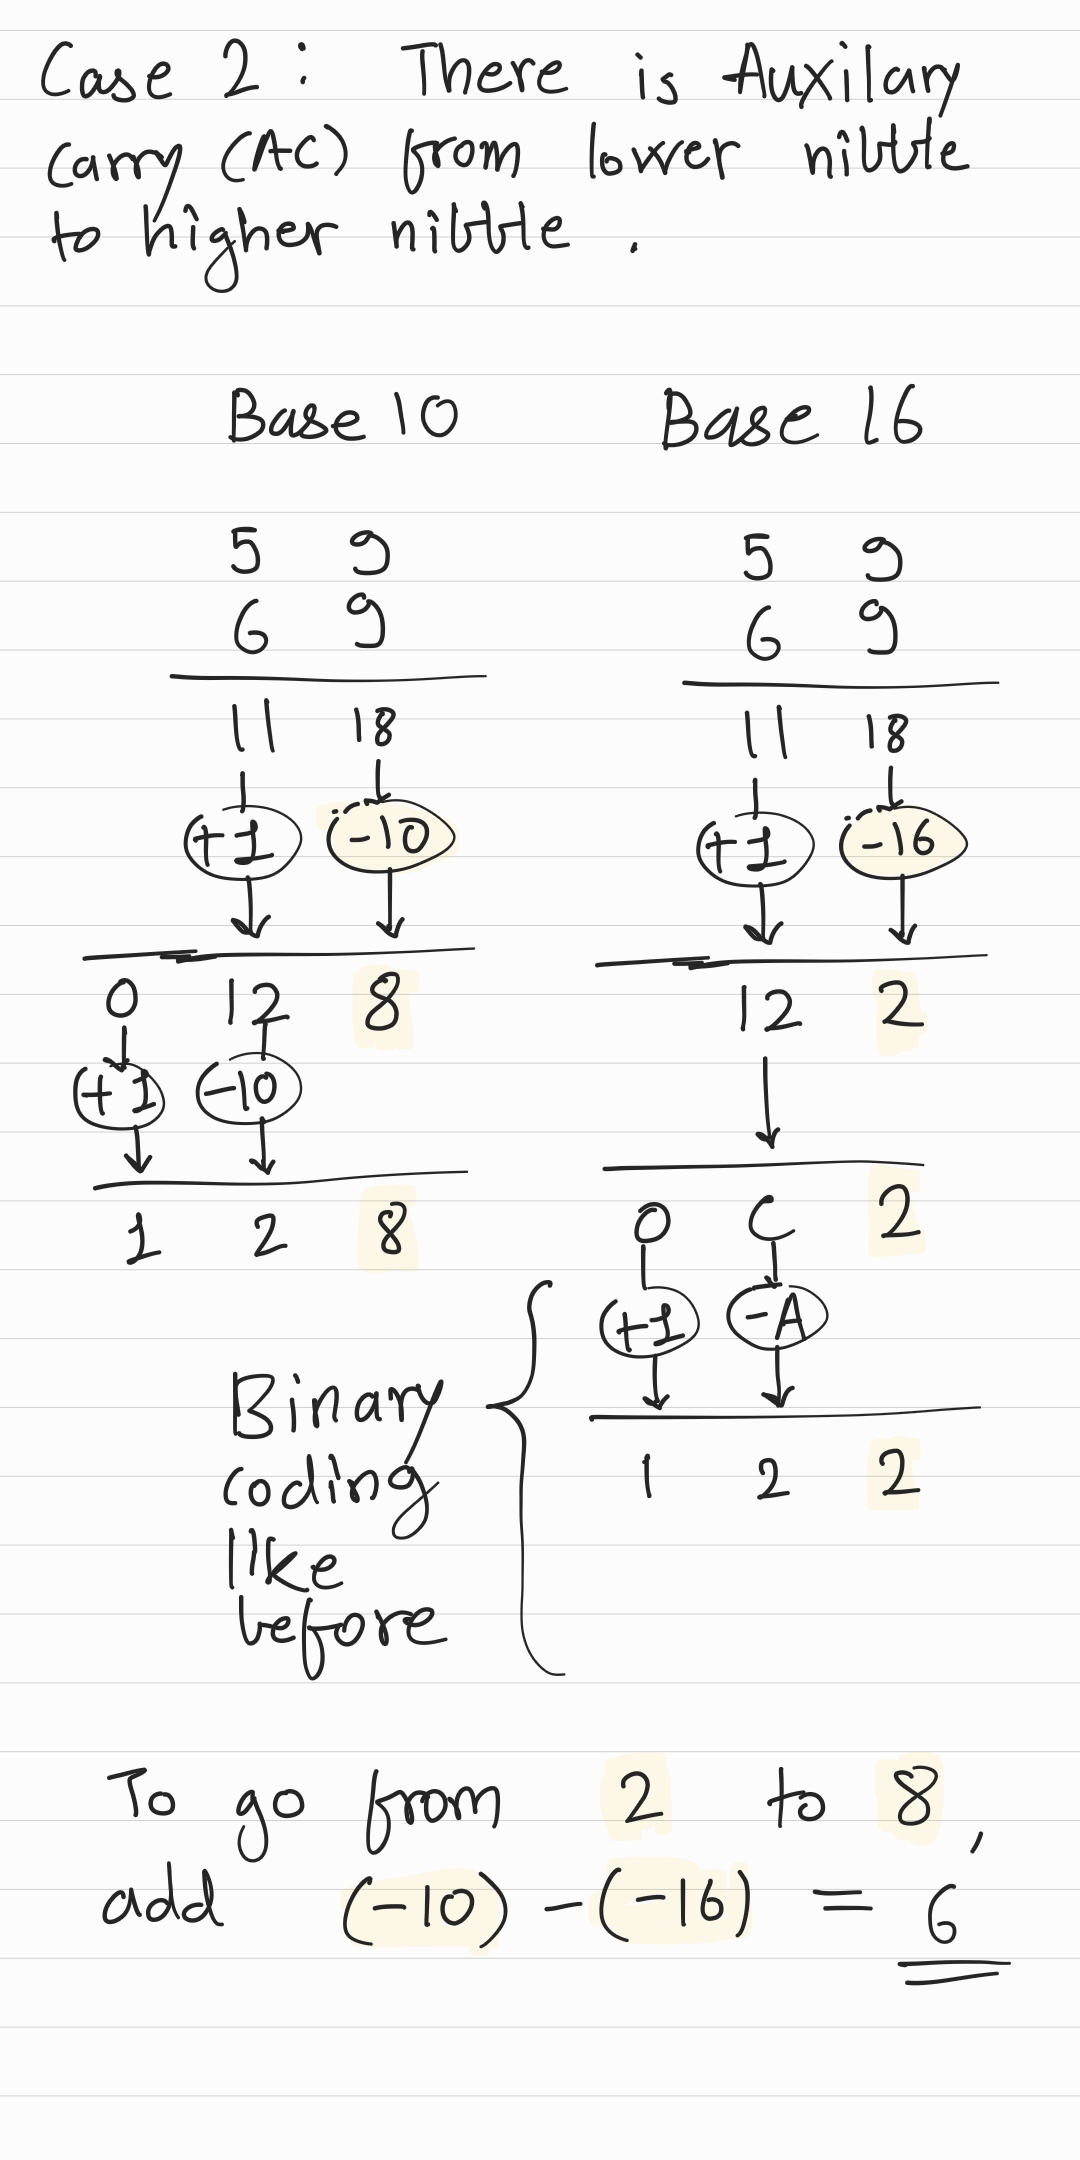 Case 2: There is Auxilary
carry (AC) from lower nibble
to higher nibble.
Base 10 Base 16
5 9 5 9
6 9 6 9
11 18 11 18
+1 -10 +1 -16
0 12 8 12 2
+1 -10
1 2 8 0 C 2
+1 -A
1 2 2
Binary
coding
like
before
To go from 2 to 8,
add (-10) - (-16) = 6